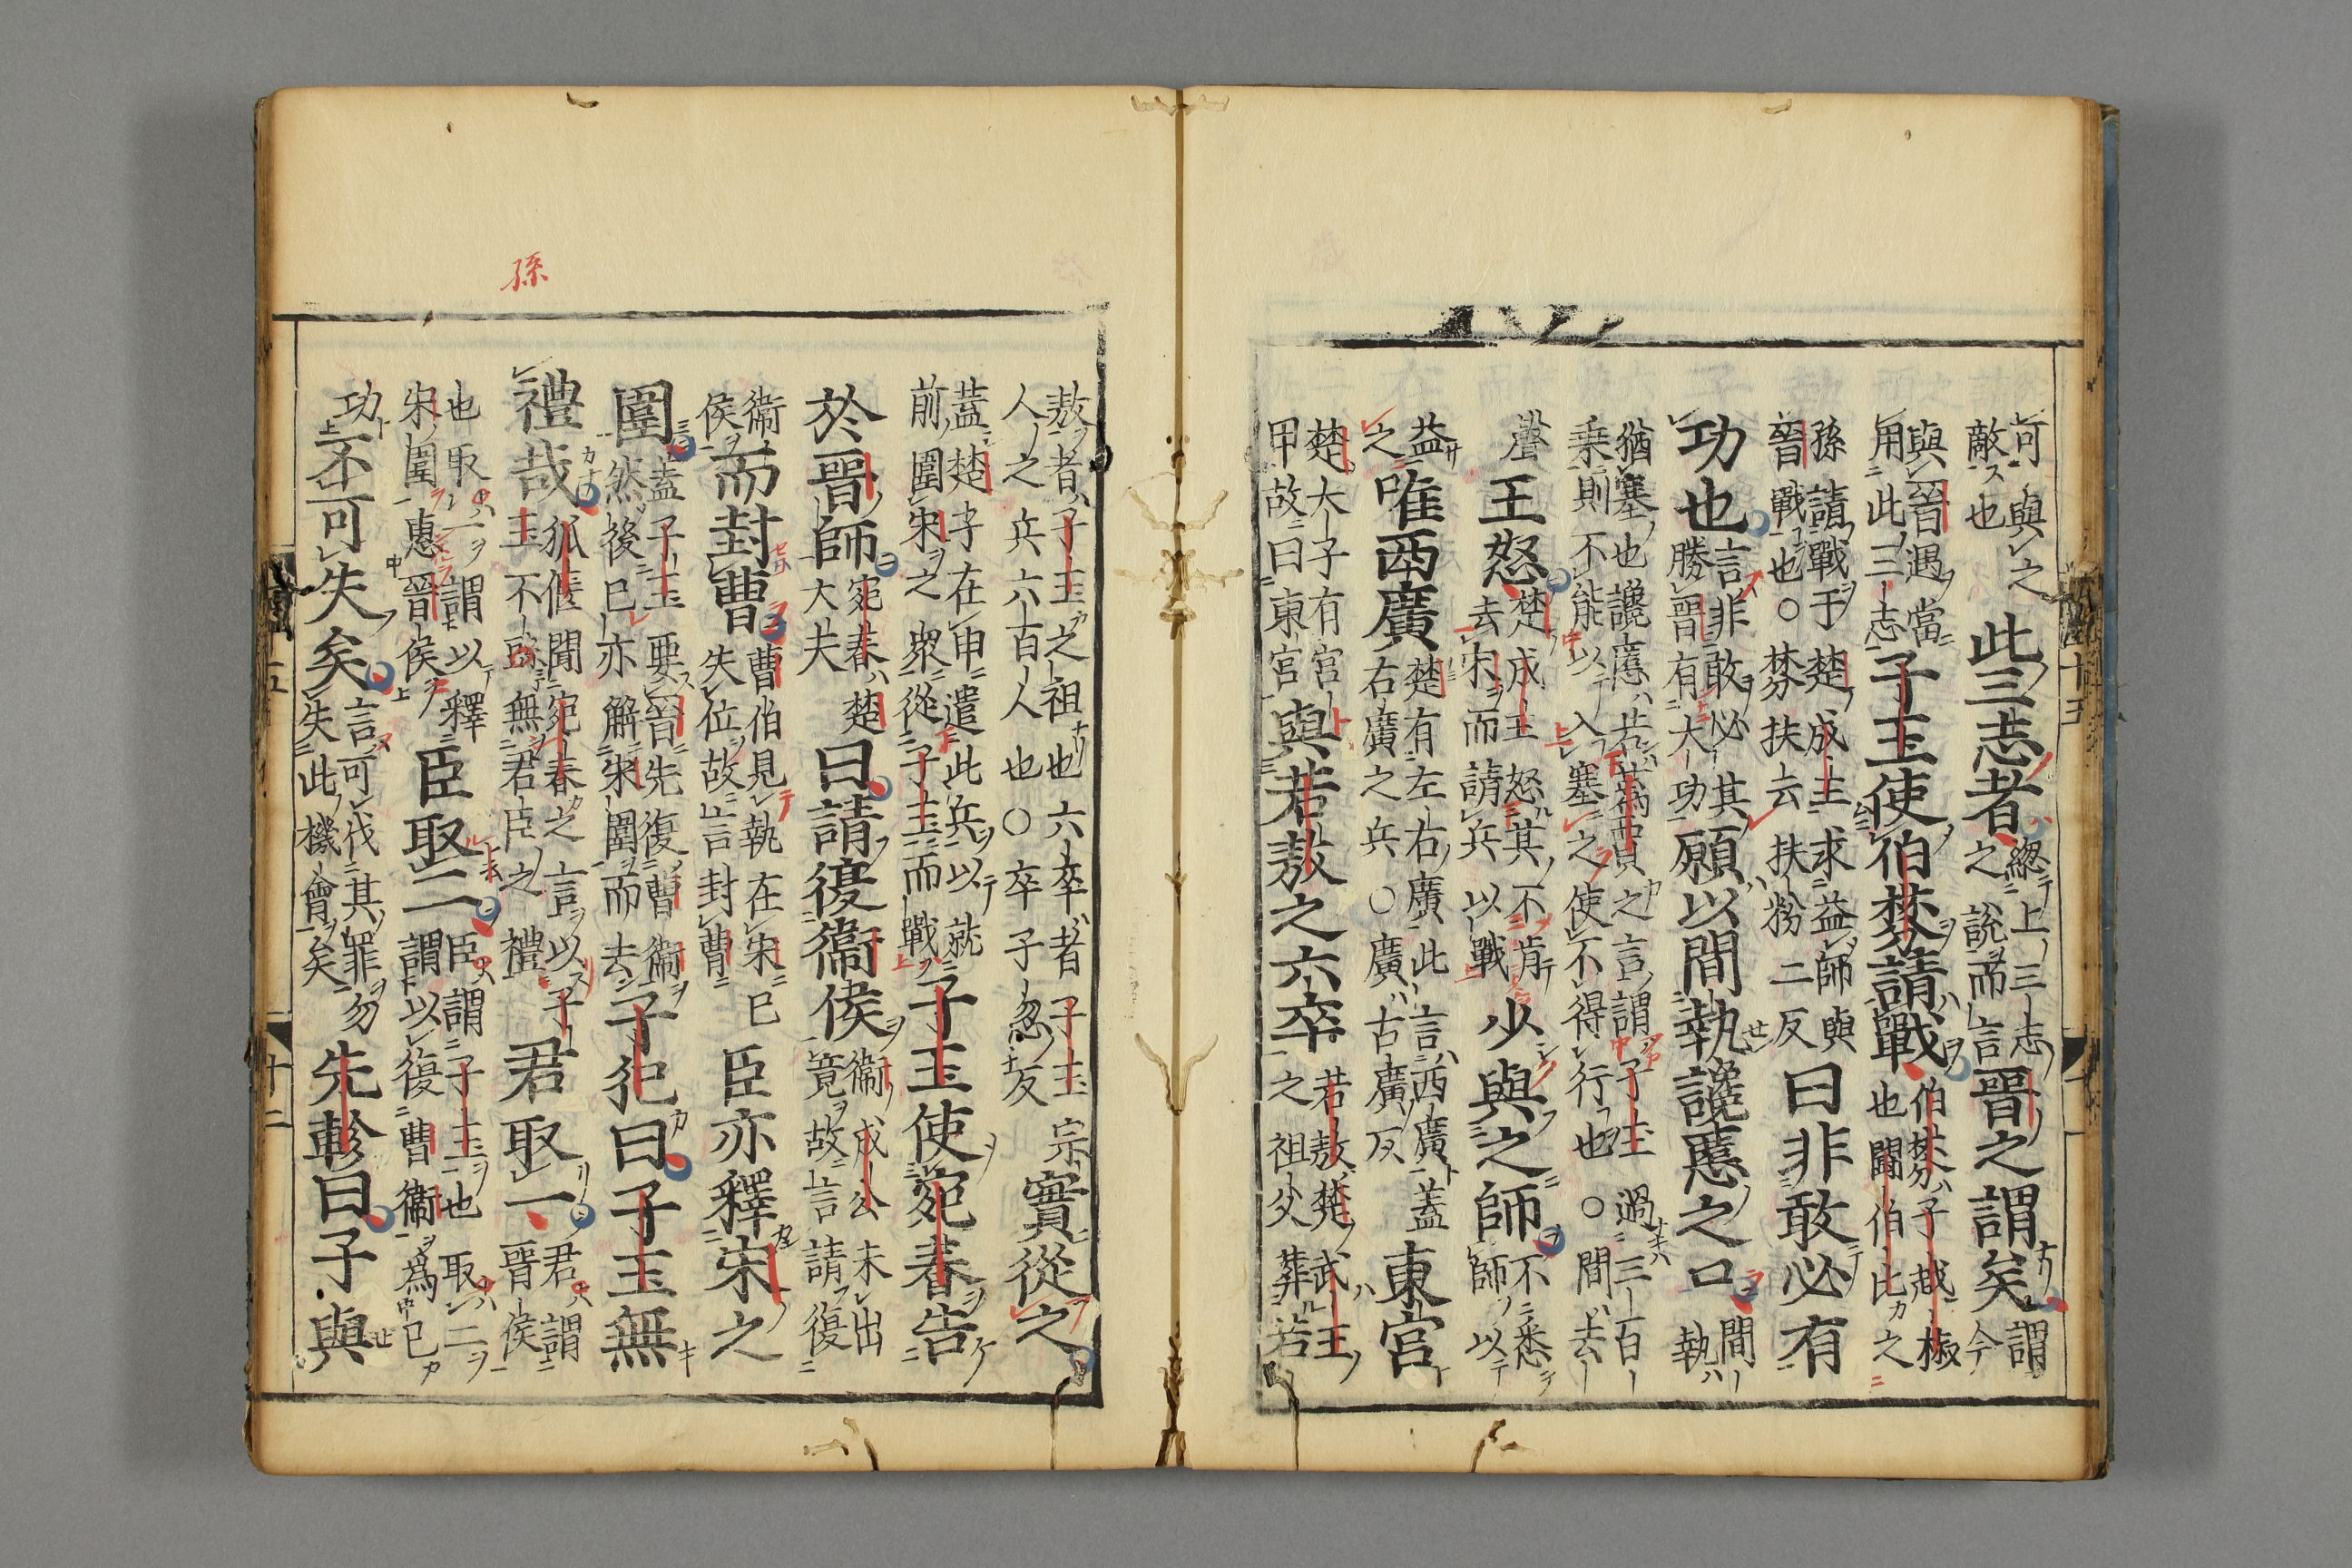 可與之敵也此三志者總上三志之說而言晉之謂矣謂今
與晉遇當用此三志子玉使伯棼請戰伯棼子越椒也鬭伯比之
孫請戰于楚成王求益師與晉戰也○棼扶云扶粉二反曰非敢必有
功也言非敢必其勝晉有大功願以間執讒慝之口間執
猶塞也讒慝若蒍賈之言謂子玉過三百乗則不能以入塞之使不得行也○間去
聲王怒楚成王怒其不肯去宋而請兵以戰少與之師不悉師以
益之唯西廣楚有左右廣此言西廣蓋右廣之兵○廣古廣反東宮
楚太子有宮甲故曰東宮與若敖之六卒若敖楚武王之祖父葬若
敖者子玉之祖也六卒者子玉宗人之兵六百人也○卒子忽反實從之
蓋楚子在申遣此兵以就前圍宋之衆從子玉而戰子玉使宛春告
於晉師宛春楚大夫曰請復衛侯衛成公未出竟故言請復
衛侯而封曹曹伯見執在宋已失位故言封曹臣亦釋宋之
圍蓋子玉要晉先復曹衛然後已亦解宋圍而去子犯曰子玉無
孫
禮哉狐偃聞宛春之言以子玉不敬無君臣之禮君取一君謂晉侯
也取一謂以釋宋圍惠晉侯臣取二臣謂子玉也取二謂以復曹衛爲已
功不可失矣言可伐其罪勿失此機會矣先軫曰子與
十二